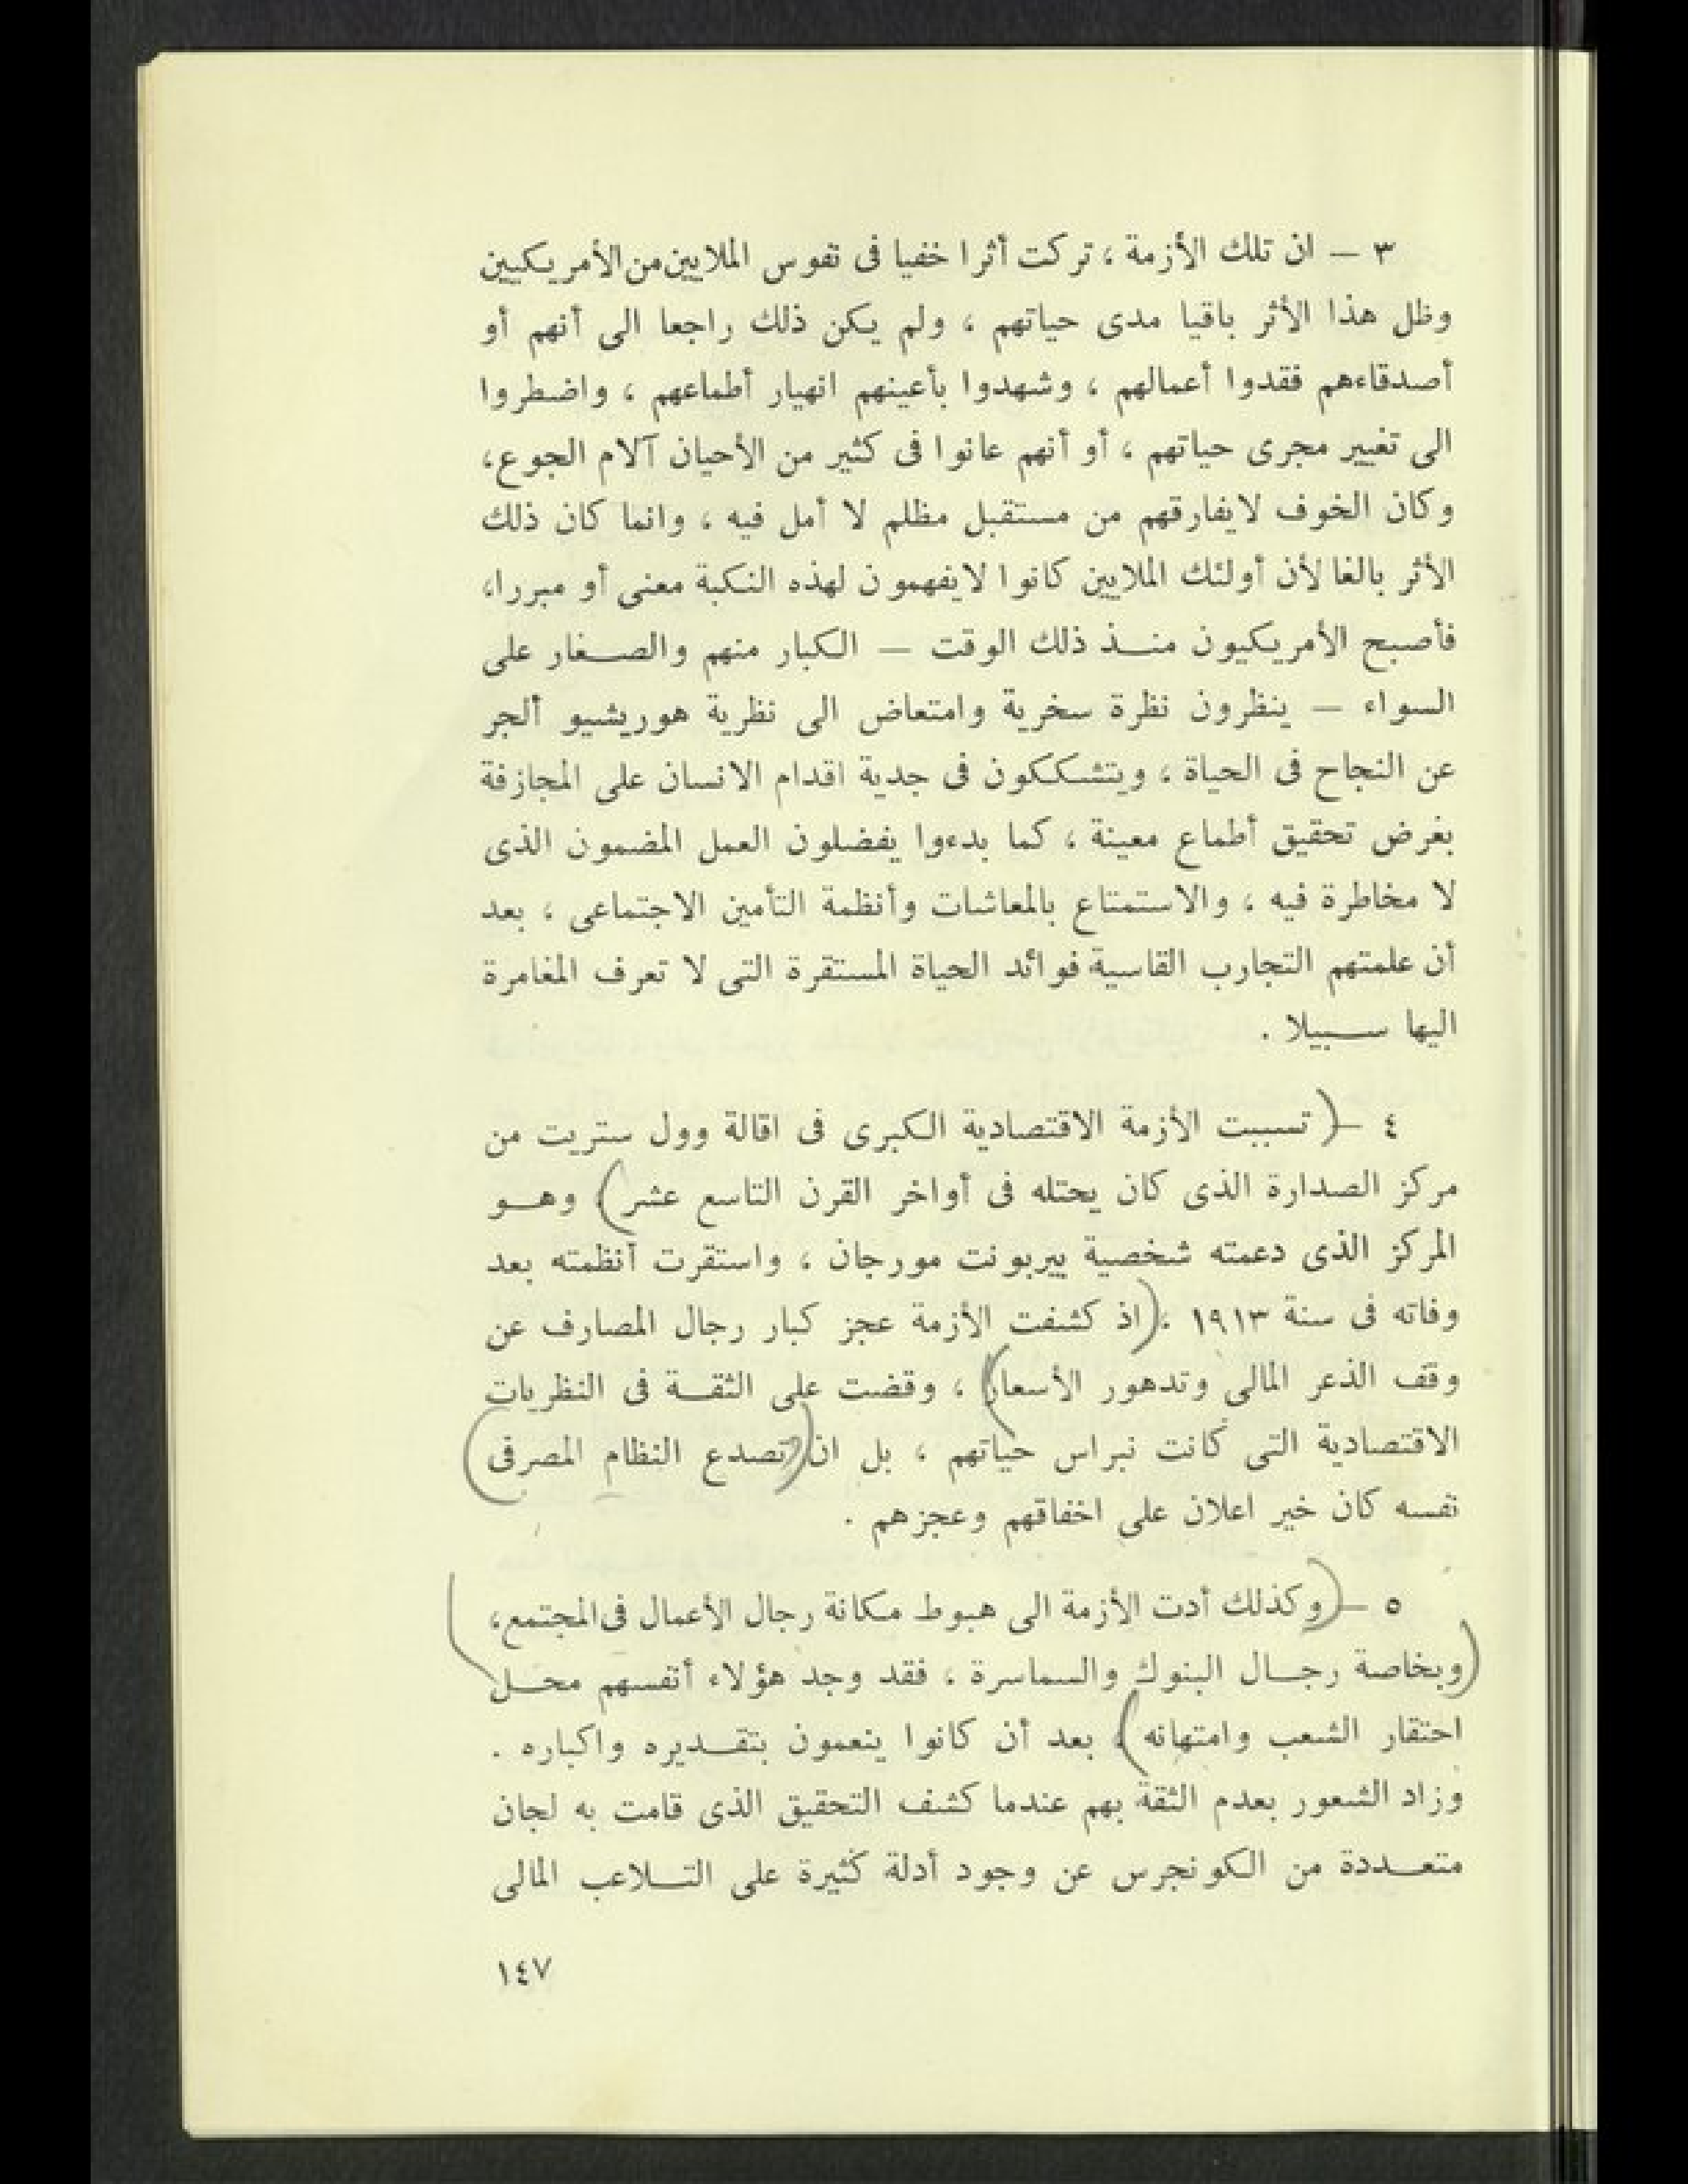 ٣ — ان تلك الأزمة ، تركت أثرا خفيا فى نفوس الملايين من الأمريكيين
وظل هذا الأثر باقيا مدى حياتهم ، ولم يكن ذلك راجعا الى أنهم أو
أصدقاءهم فقدوا أعمالهم ، وشهدوا بأعينهم انهيار أطماعهم ، واضطروا
الى تغيير مجرى حياتهم ، أو أنهم عانوا فى كثير من الأحيان آلام الجوع،
وكان الخوف لايفارقهم من مستقبل مظلم لا أمل فيه ، وانما كان ذلك
الأثر بالغا لأن أولئك الملايين كانوا لايفهمون لهذه النكبة معنى أو مبررا،
فأصبح الأمريكيون منذ ذلك الوقت — الكبار منهم والصغار على
السواء — ينظرون نظرة سخرية وامتعاض الى نظرية هوريشيو ألجر
عن النجاح فى الحياة ، ويتشككون فى جدية اقدام الانسان على المجازفة
بغرض تحقيق أطماع معينة ، كما بدءوا يفضلون العمل المضمون الذى
لا مخاطرة فيه ، والاستمتاع بالمعاشات وأنظمة التأمين الاجتماعى ، بعد
أن علمتهم التجارب القاسية فوائد الحياة المستقرة التى لا تعرف المغامرة
اليها سبيلا .
٤ — (تسببت الأزمة الاقتصادية الكبرى فى اقالة وول ستريت من
مركز الصدارة الذى كان يحتله فى أواخر القرن التاسع عشر)، وهو
المركز الذى دعمته شخصية بيربونت مورجان ، واستقرت أنظمته بعد
وفاته فى سنة ١٩١٣ ،(اذ كشفت الأزمة عجز كبار رجال المصارف عن
وقف الذعر المالى وتدهور الأسعار) ، وقضت على الثقة فى النظريات
الاقتصادية التى كانت نبراس حياتهم ، بل ان (تصدع النظام المصرفى)
نفسه كان خير اعلان على اخفاقهم وعجزهم .
٥ — (وكذلك أدت الأزمة الى هبوط مكانة رجال الأعمال فى المجتمع،
(وبخاصة رجال البنوك والسماسرة ، فقد وجد هؤلاء أنفسهم محل
احتقار الشعب وامتهانه)، بعد أن كانوا ينعمون بتقديره واكباره .
وزاد الشعور بعدم الثقة بهم عندما كشف التحقيق الذى قامت به لجان
متعددة من الكونجرس عن وجود أدلة كثيرة على التلاعب المالى
١٤٧